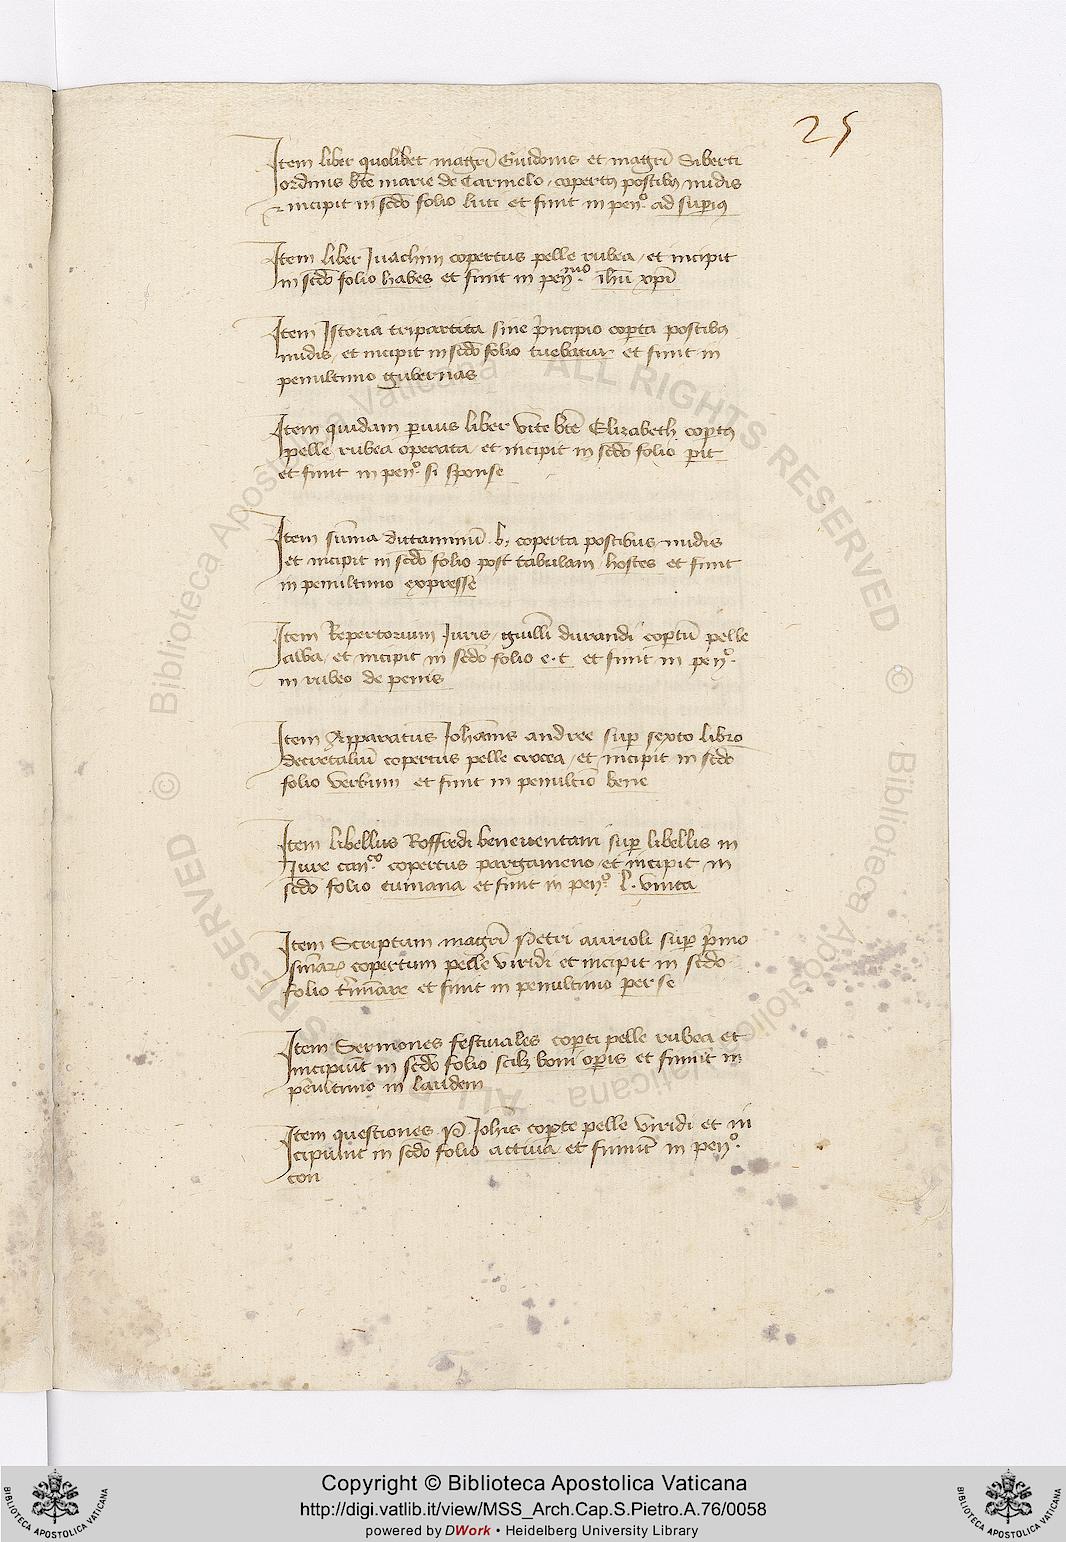 25
Item liber quolibet magr̄i Guidonis et magr̄i Siberti
ordinis bt̄e marie de Carmelo, copertꝰ postibꝰ nudis
incipit in scd̄o folio luti et finit in pen.º ad superiꝰ
Item liber Juachim copertus pelle rubea, et incipit
in scd̄o folio habes et finit in pen.mo ih̄u xp̄i
Item Istoria tripartita sine p̄ncipio cop̄ta postibꝰ
nudis, et incipit in scd̄o folio tuebatur et finit in
penultimo gubernas
Item quidam p̄uus liber vite bt̄e Elizabeth cop̄tꝰ
pelle rubea operata, et incipit in scd̄o folio p̄it
et finit in pen.º si sponse
Item sum̄a dictaminū b; coperta postibus nudis
et incipit in scd̄o folio post tabulam hostes et finit
in penultimo expresse
Item Repertorium Juris, guill̄i durandi cop̄tū pelle
alba, et incipit in scd̄o folio e.t et finit in pen.º
in rubeo de penis
Item Apparatus Joh̄anis andree sup̄ sexto libro
decretaliū copertus pelle crocea, et incipit in scd̄o
folio verbum et finit in penultīo bene
Item libellus Roffredi beneuentani sup̄ libellis in
Jure can.co copertus pargameno et incipit in
scd̄o folio et finit in pen.º l. vnica
Item Scriptum magr̄i Petri aurioli sup̄ p̄mo
sn̄iaꝝ copertum pelle viridi et incipit in scd̄o
folio t̄minare et finit in penultimo per se
Item Sermones festiuales cop̄ti pelle rubea et
incipiūt in scd̄o folio scilꝫ boni op̄is et finiūt in
penultimo in laudem
Item questiones P. Joh̄is cop̄te pelle viridi et in
cipiunt in scd̄o folio actiua et finiūt in pen.º
con
© Biblioteca Apostolica Vaticana ALL RIGHTS RESERVED © Biblioteca Apostolica Vaticana ALL RIGHTS RESERVED
Copyright © Biblioteca Apostolica Vaticana
http://digi.vatlib.it/view/MSS_Arch.Cap.S.Pietro.A.76/0058
powered by DWork • Heidelberg University Library
BIBLIOTECA APOSTOLICA VATICANA
BIBLIOTECA APOSTOLICA VATICANA